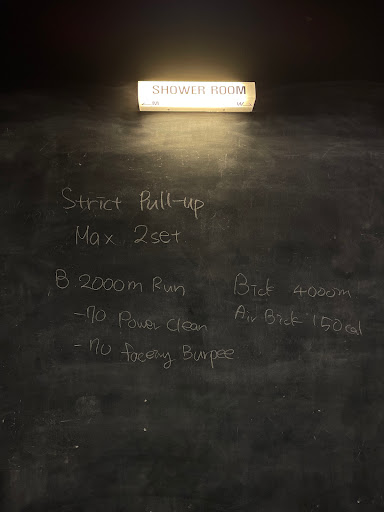 SHOWER ROOM
Strict Pull-up
Max 2set
B. 2000m Run
-70 Power Clean
- 70 facing Burpee
Bick 4000m
Air Bick 150cal